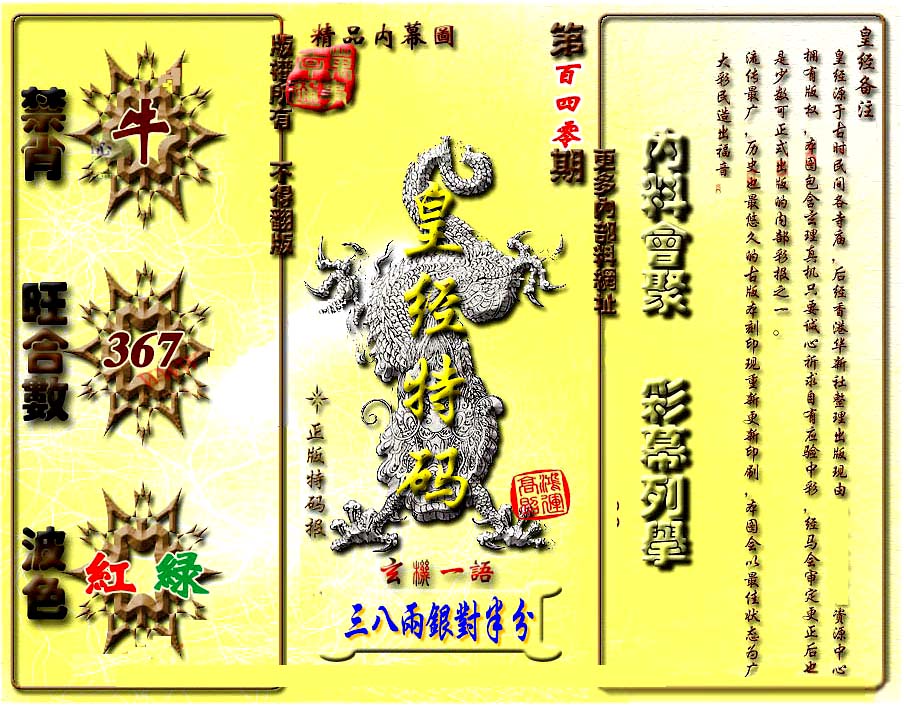 皇经备注
皇经源于古时民间各寺庙，后经香港华新社整理出版现由 资源中心
拥有版权，本图包含玄理真机只要诚心祈求自有应验中彩，经马会审定更正后也
是少数可正式出版的内部彩报之一。
流传最广，历史也最悠久的古版本刻印现重新更新印刷，本图会以最佳状态为广
大彩民造出福音
内料會聚 彩幕列舉
更多內部料網址
第百四零期
精品内幕圖
皇经特码
正版特码报
鴻運
高照
玄機一語
三八兩銀對半分
版權所有 不得翻版
禁肖
牛
旺合數
367
波色
紅 綠